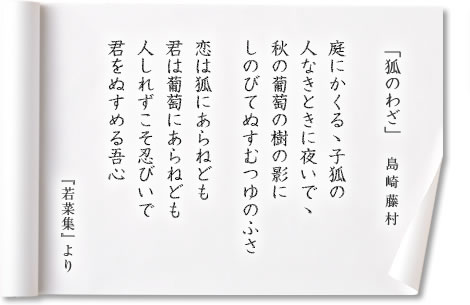 「狐のわざ」　島崎藤村
庭にかくるゝ子狐の
人なきときに夜いでゝ
秋の葡萄の樹の影に
しのびてぬすむつゆのふさ
恋は狐にあらねども
君は葡萄にあらねども
人しれずこそ忍びいで
君をぬすめる吾心
『若菜集』より